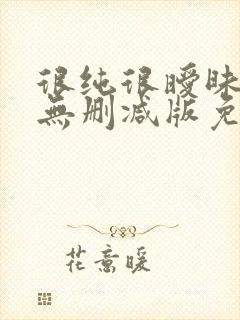 很纯很曖昧
無删减版免
花意暖